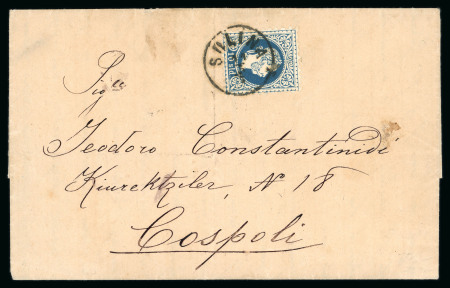 SULINA
Sigr
Teodoro Constantinidi
Kiurektziler, N 18
Cospoli